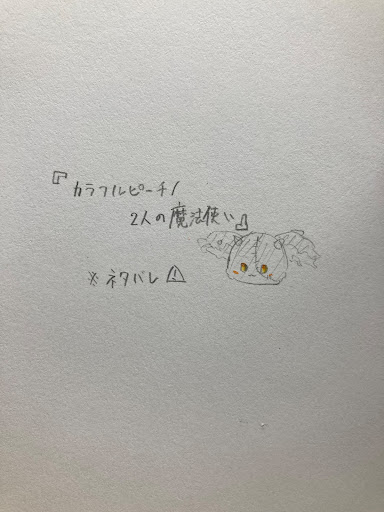 『カラフルピーチ/
2人の魔法使い』
※ネタバレ⚠